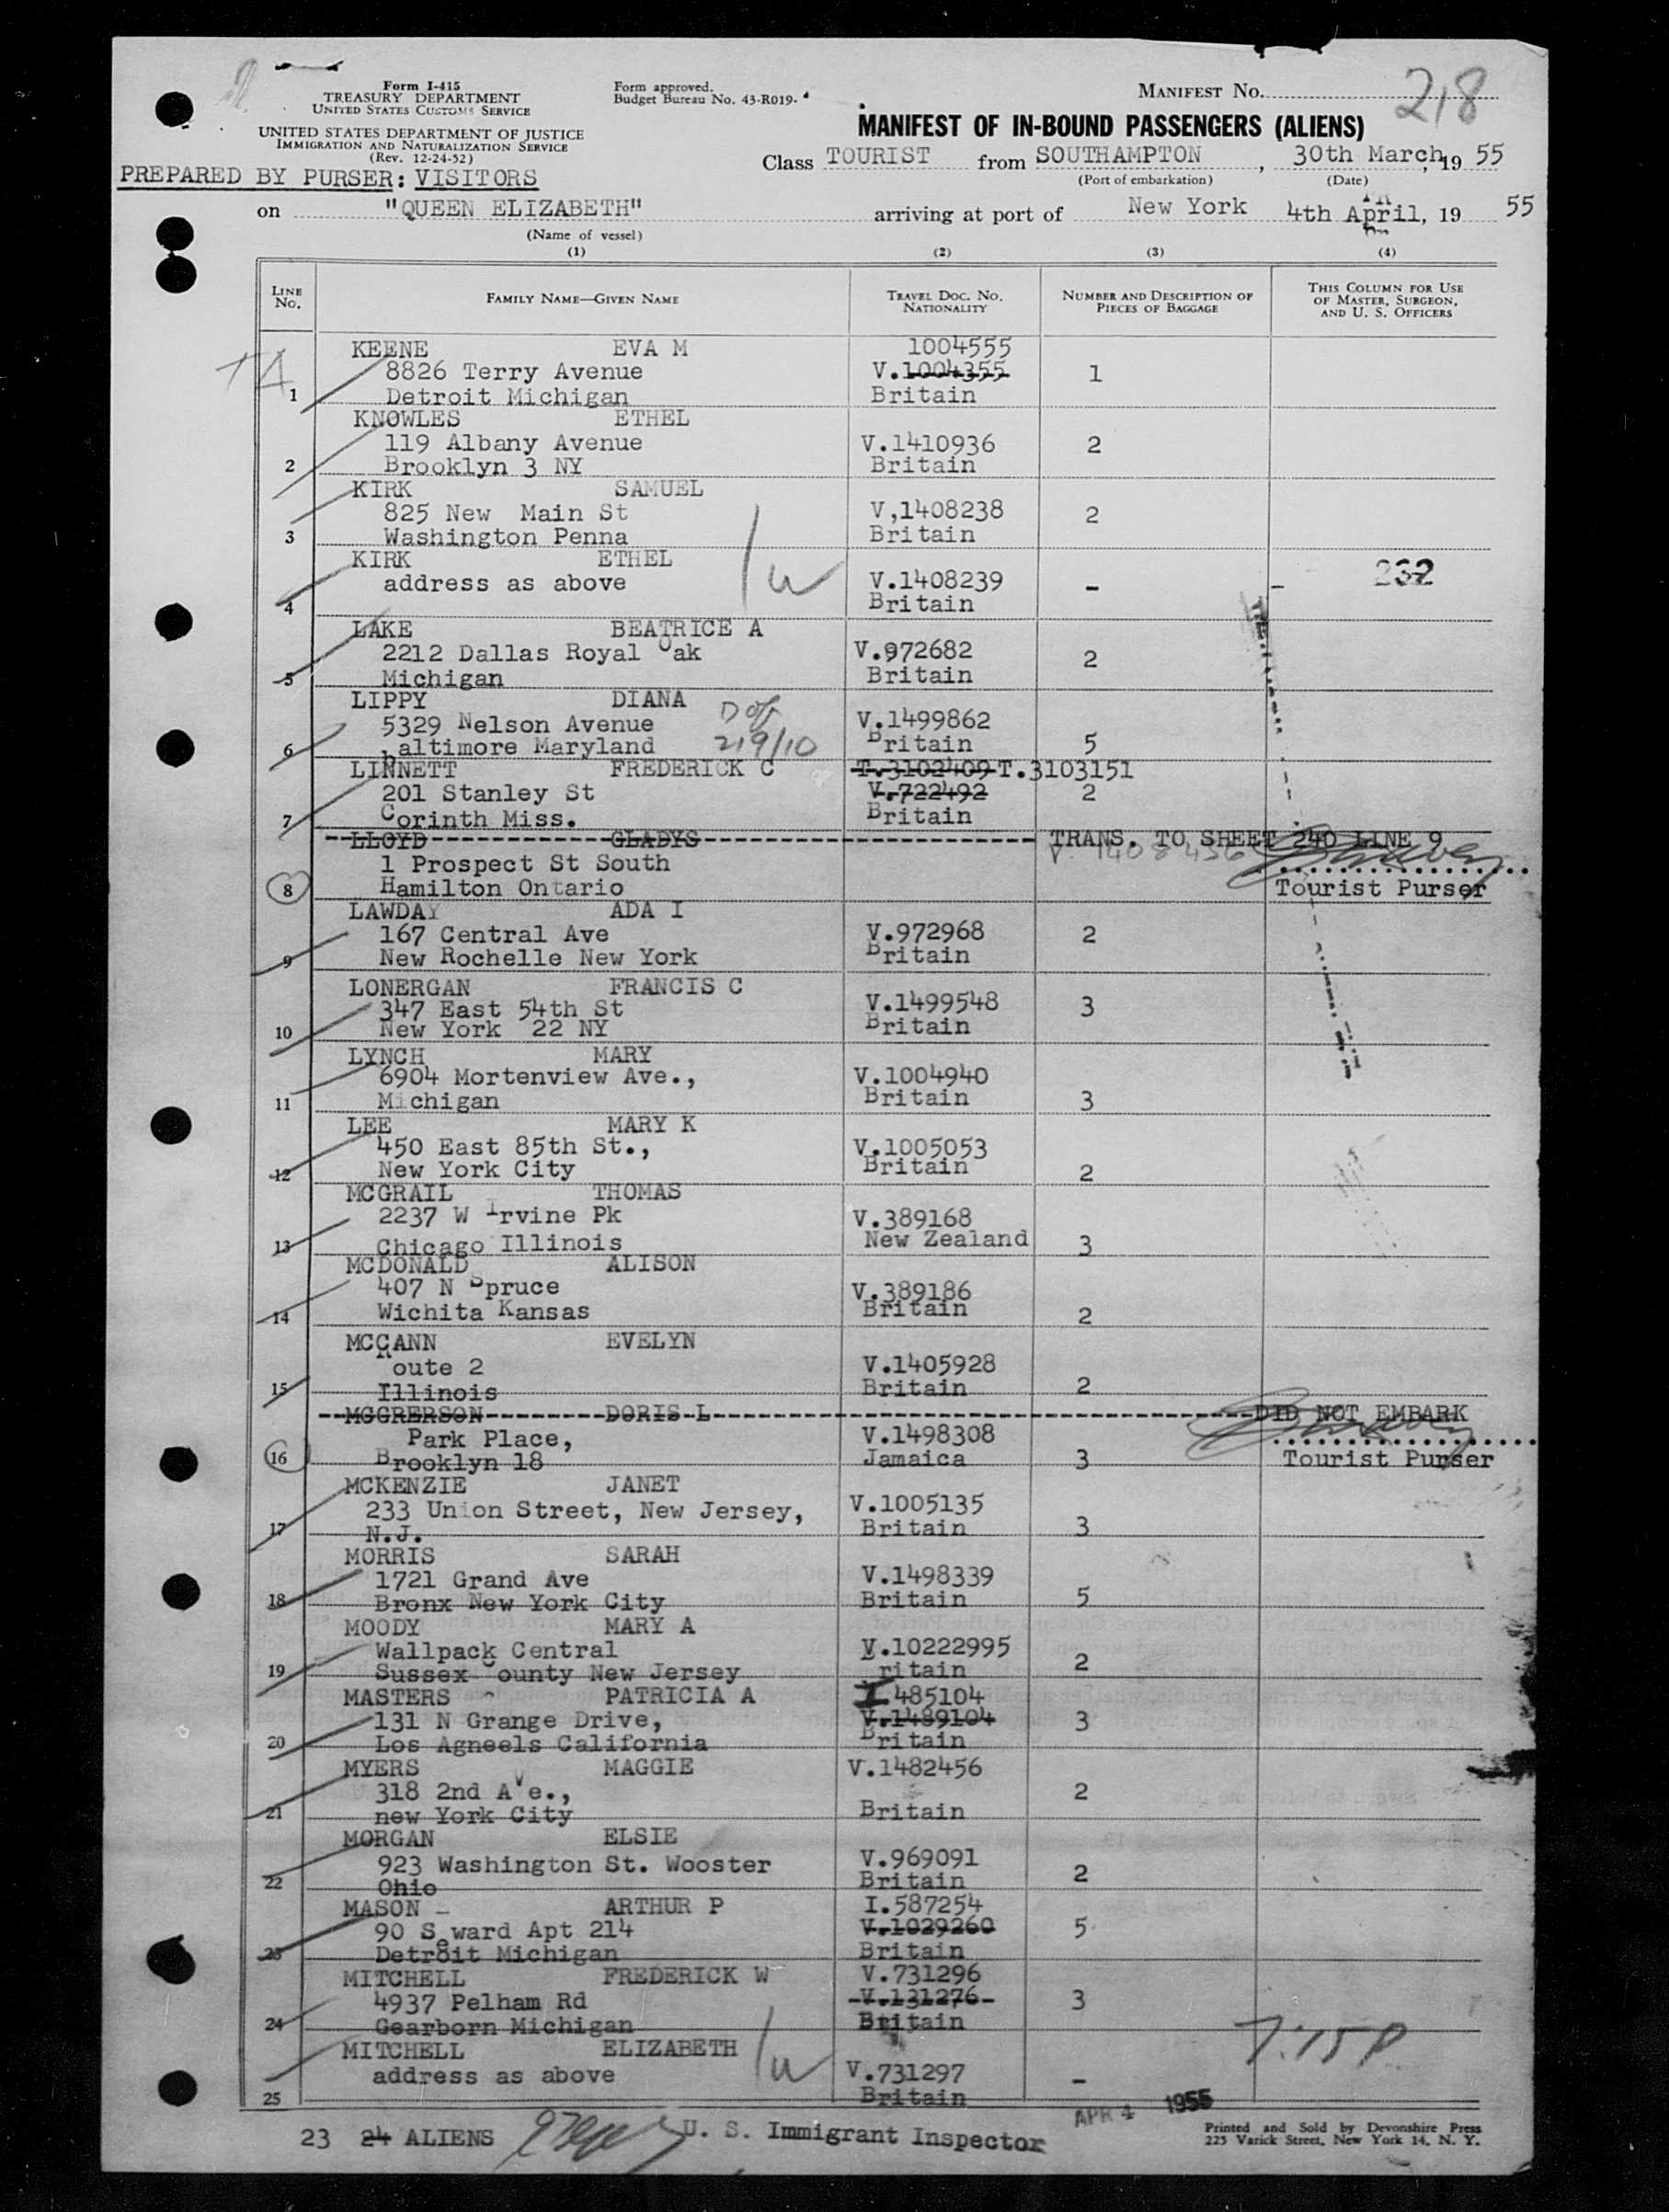 Form I-415
TREASURY DEPARTMENT
UNITED STATES CUSTOMS SERVICE
UNITED STATES DEPARTMENT OF JUSTICE
IMMIGRATION AND NATURALIZATION SERVICE
(Rev. 12-24-52)
PREPARED BY PURSER: VISITORS
Form approved.
Budget Bureau No. 43-R019-
MANIFEST NO. 218
MANIFEST OF IN-BOUND PASSENGERS (ALIENS)
Class TOURIST from SOUTHAMPTON, 30th March, 19 55
(Port of embarkation) (Date)
on "QUEEN ELIZABETH" arriving at port of New York 4th April, 19 55
(Name of vessel)
(1) (2) (3) (4)
LINE NO. FAMILY NAME—GIVEN NAME TRAVEL DOC. NO. NATIONALITY NUMBER AND DESCRIPTION OF PIECES OF BAGGAGE THIS COLUMN FOR USE OF MASTER, SURGEON, AND U. S. OFFICERS
KEENE EVA M 1004555
8826 Terry Avenue V.1004355 1
1 Detroit Michigan Britain
KNOWLES ETHEL
119 Albany Avenue V.1410936 2
2 Brooklyn 3 NY Britain
KIRK SAMUEL
825 New Main St V,1408238 2
3 Washington Penna Britain
KIRK ETHEL 232
address as above V.1408239 - -
4 Britain
LAKE BEATRICE A
2212 Dallas Royal Oak V.972682 2
5 Michigan Britain
LIPPY DIANA
5329 Nelson Avenue V.1499862
6 altimore Maryland 219/10 Britain 5
LINNETT FREDERICK C T.3102409 T.3103151
201 Stanley St V.722492 2
7 Corinth Miss. Britain
LLOYD GLADYS TRANS. TO SHEET 240 LINE 9
1 Prospect St South V. 1408456
8 Hamilton Ontario Tourist Purser
LAWDAY ADA I
167 Central Ave V.972968 2
9 New Rochelle New York Britain
LONERGAN FRANCIS C
347 East 54th St V.1499548 3
10 New York 22 NY Britain
LYNCH MARY
6904 Mortenview Ave., V.1004940
11 Michigan Britain 3
LEE MARY K
450 East 85th St., V.1005053
12 New York City Britain 2
MCGRAIL THOMAS
2237 W Irvine Pk V.389168
13 Chicago Illinois New Zealand 3
MCDONALD ALISON
407 N Spruce V.389186
14 Wichita Kansas Britain 2
MCCANN EVELYN
Route 2 V.1405928
15 Illinois Britain 2
MCGRERSON DORIS L DID NOT EMBARK
Park Place, V.1498308
16 Brooklyn 18 Jamaica 3 Tourist Purser
MCKENZIE JANET
233 Union Street, New Jersey, V.1005135
17 N.J. Britain 3
MORRIS SARAH
1721 Grand Ave V.1498339
18 Bronx New York City Britain 5
MOODY MARY A
Wallpack Central V.10222995
19 Sussex County New Jersey ritain 2
MASTERS PATRICIA A I 485104
131 N Grange Drive, V.1489104 3
20 Los Agneels California Britain
MYERS MAGGIE V.1482456
318 2nd Ave., 2
21 new York City Britain
MORGAN ELSIE
923 Washington St. Wooster V.969091
22 Ohio Britain 2
MASON ARTHUR P I.587254
90 Seward Apt 214 V.1029260 5
23 Detroit Michigan Britain
MITCHELL FREDERICK W V.731296
4937 Pelham Rd V.131276 3
24 Gearborn Michigan Britain
MITCHELL ELIZABETH 7:15P
address as above V.731297 -
25 Britain
23 24 ALIENS U. S. Immigrant Inspector APR 4 1955
Printed and Sold by Devonshire Press
225 Varick Street, New York 14, N. Y.